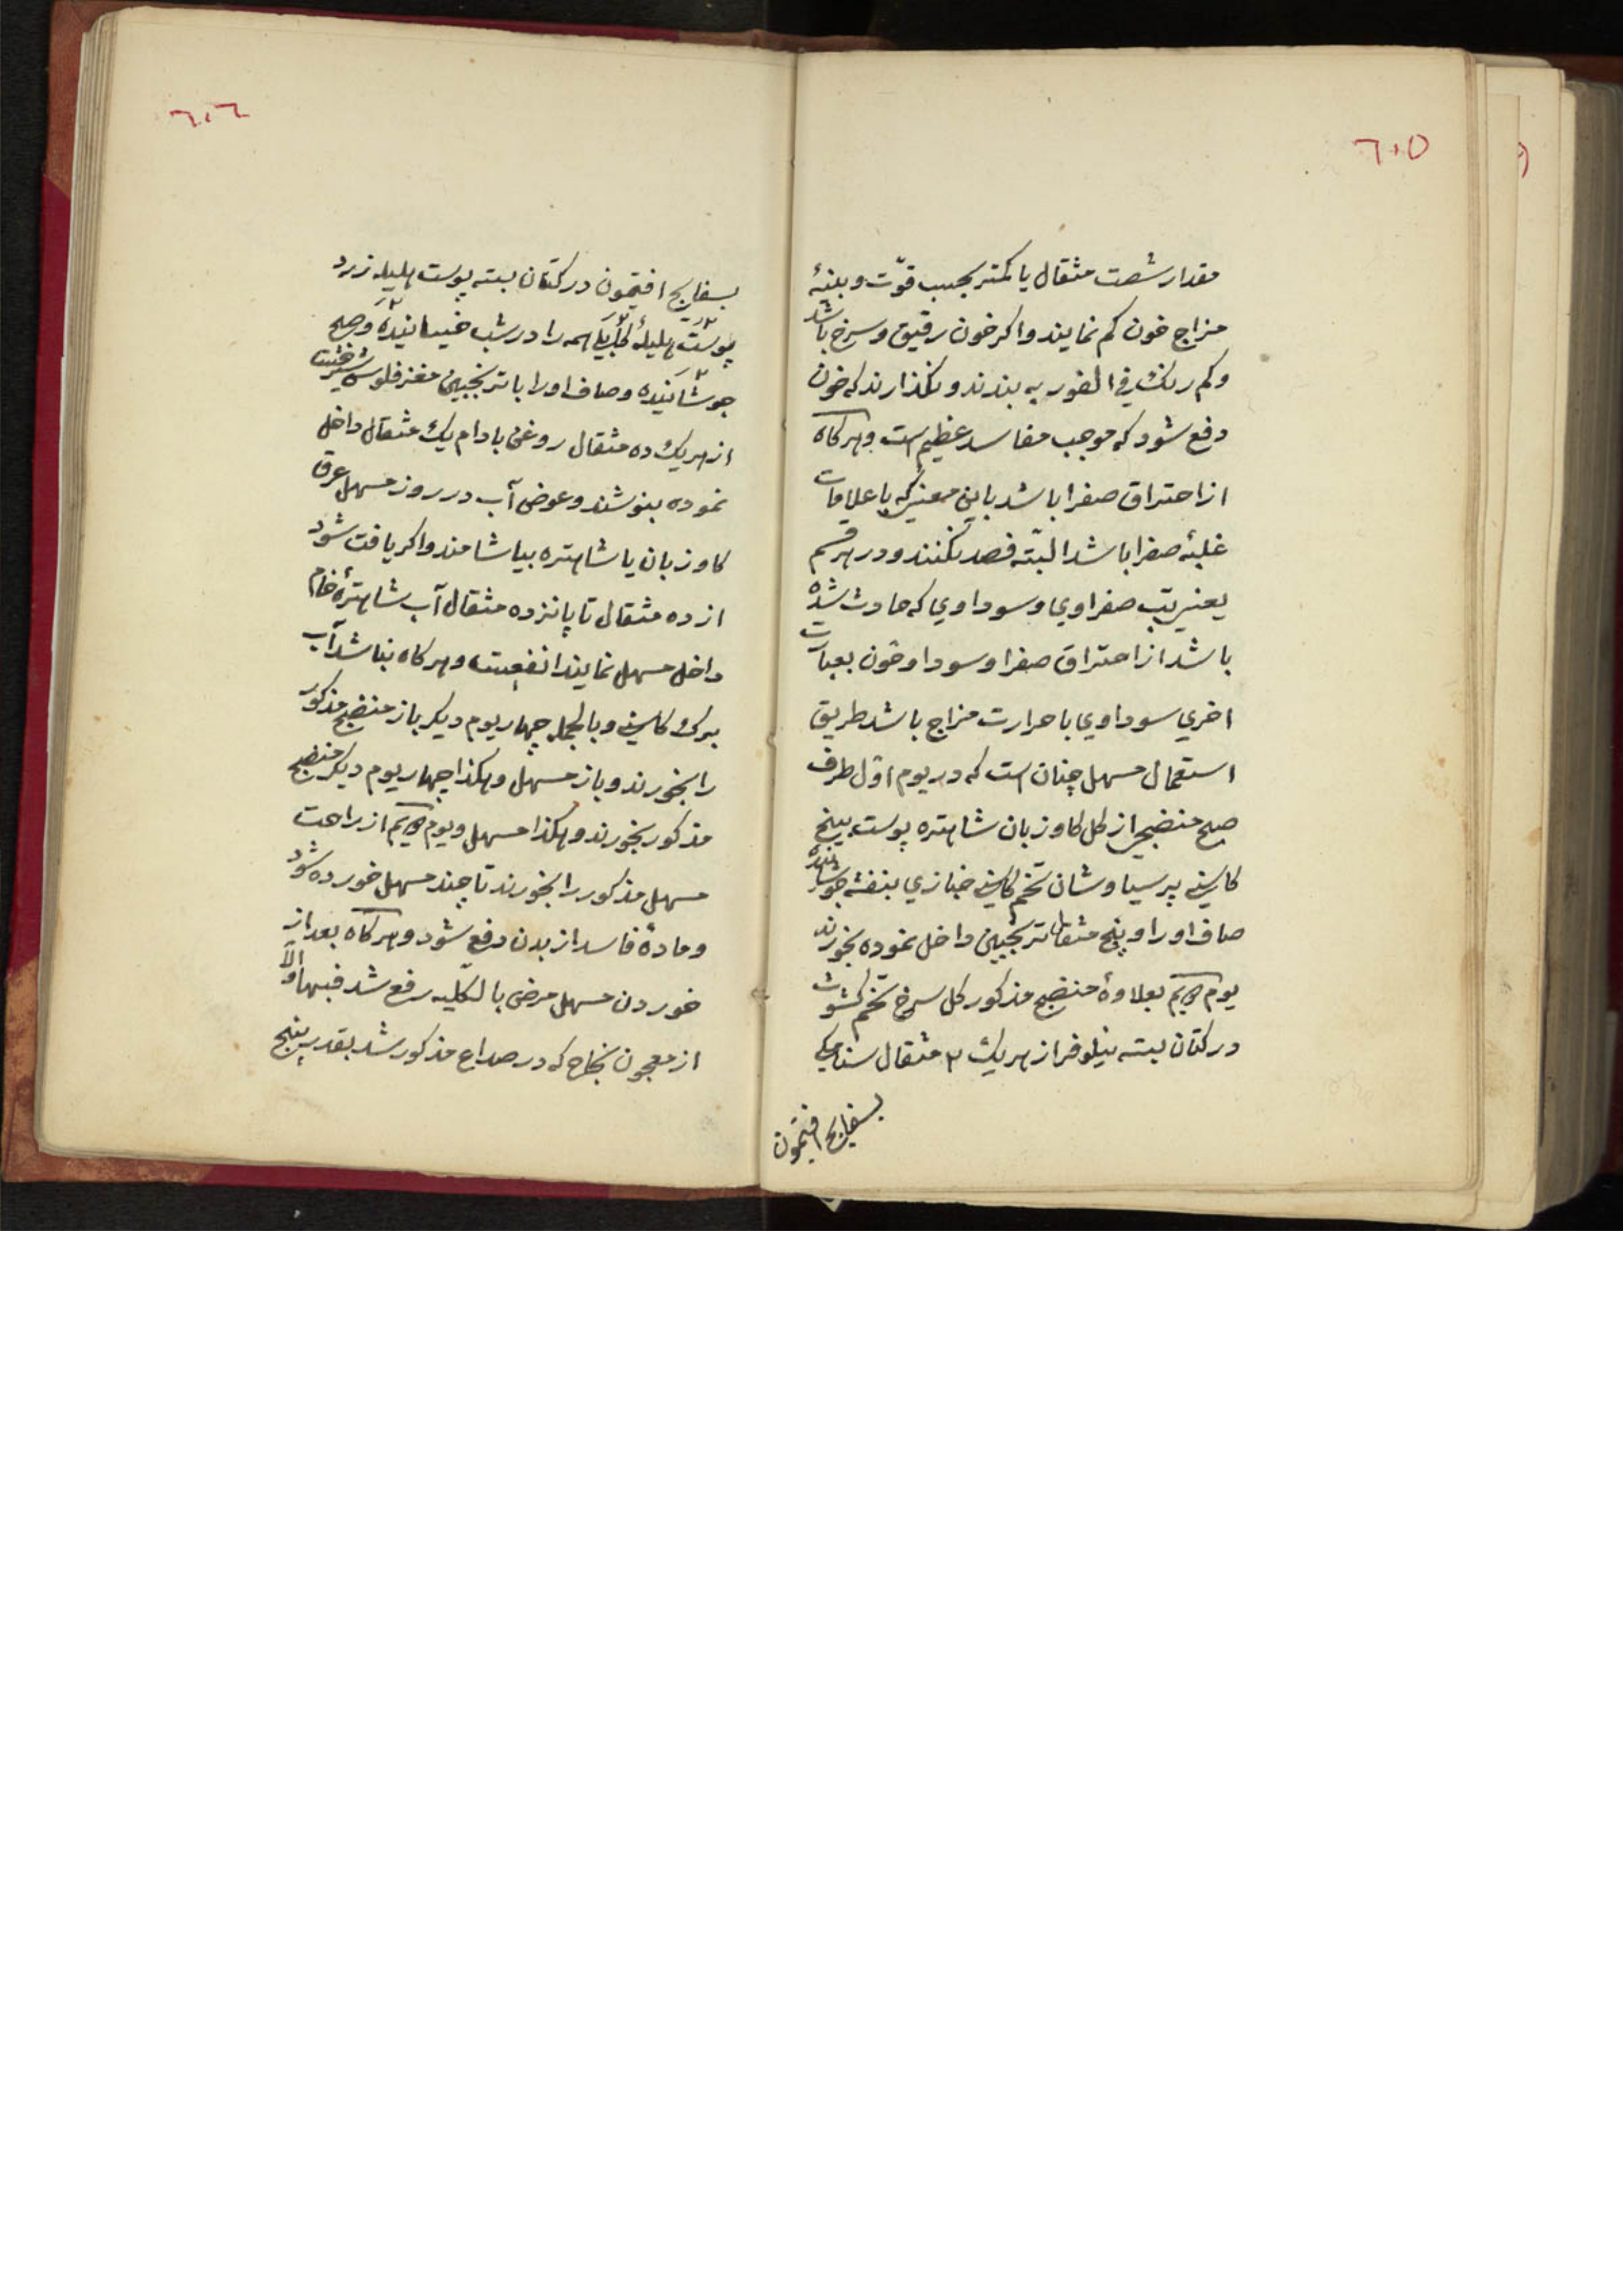 ٦٠٥
مقدار شصت مثقال یا کمتر بحسب قوّت و بنیهٔ
مزاج خون کم نمایند و اکر خون رقیق و سرخ باشد
و کم رنک فی الفور به بندند و نکذارند که خون
دفع شود که موجب مفاسد عظیم است و هرکاه
از احتراق صفرا باشد باین معنی که با علامات
غلبهٔ صفرا باشد البتّه فصد نکنند و در هر قسم
یعنی تب صفراوی و سوداوی که حادث شده
باشد از احتراق صفرا و سودا و خون بعبارت
اخری سوداوی با حرارت مزاج باشد طریق
استعمال مسهل چنان است که در یوم اوّل طرف
صبح منضجی از کل کاوزبان شاهتره پوست بیخ
کاسنی پرسیاوشان تخم کاسنی خبازی بنفشه جوشانیده
صاف او را و پنج مثقال ترنجبین داخل نموده بخورند
یوم پنجم بعلاوهٔ منضج مذکور کل سرخ تخم کشوث
در کتان بسته نیلوفر از هریک ٢ مثقال سنا مکی
بسفایج افتیمون
٦٠٦
بسفایج افتیمون در کتان بسته پوست هلیله زرد
پوست هلیلهٔ کابلی همه را در شب خیسانیده و صبح
جوشانیده و صاف او را با ترنجبین مغز فلوس شیرخشت
از هریک ده مثقال روغن بادام یک مثقال داخل
نموده بنوشند و عوض آب در روز مسهل عرق
کاوزبان یا شاهتره بیاشامند و اکر یافت شود
از ده مثقال تا پانزده مثقال آب شاهترهٔ خام
داخل مسهل نمایند انفعست و هرکاه نباشد آب
برک کاسنی و بالجمله چهار یوم دیکر باز منضج مذکور
را بخورند و باز مسهل و هکذا چهار یوم دیکر منضج
مذکور بخورند و هکذا مسهل و یوم پنجم از راحت
مسهل مذکور را بخورند تا چند مسهل خورده شود
و مادهٔ فاسد از بدن دفع شود و هرکاه بعد از
خوردن مسهل مرض بالکلّیه رفع شد فبها و الّا
از معجون نجاح که در صداع مذکور شد بقدر پنج